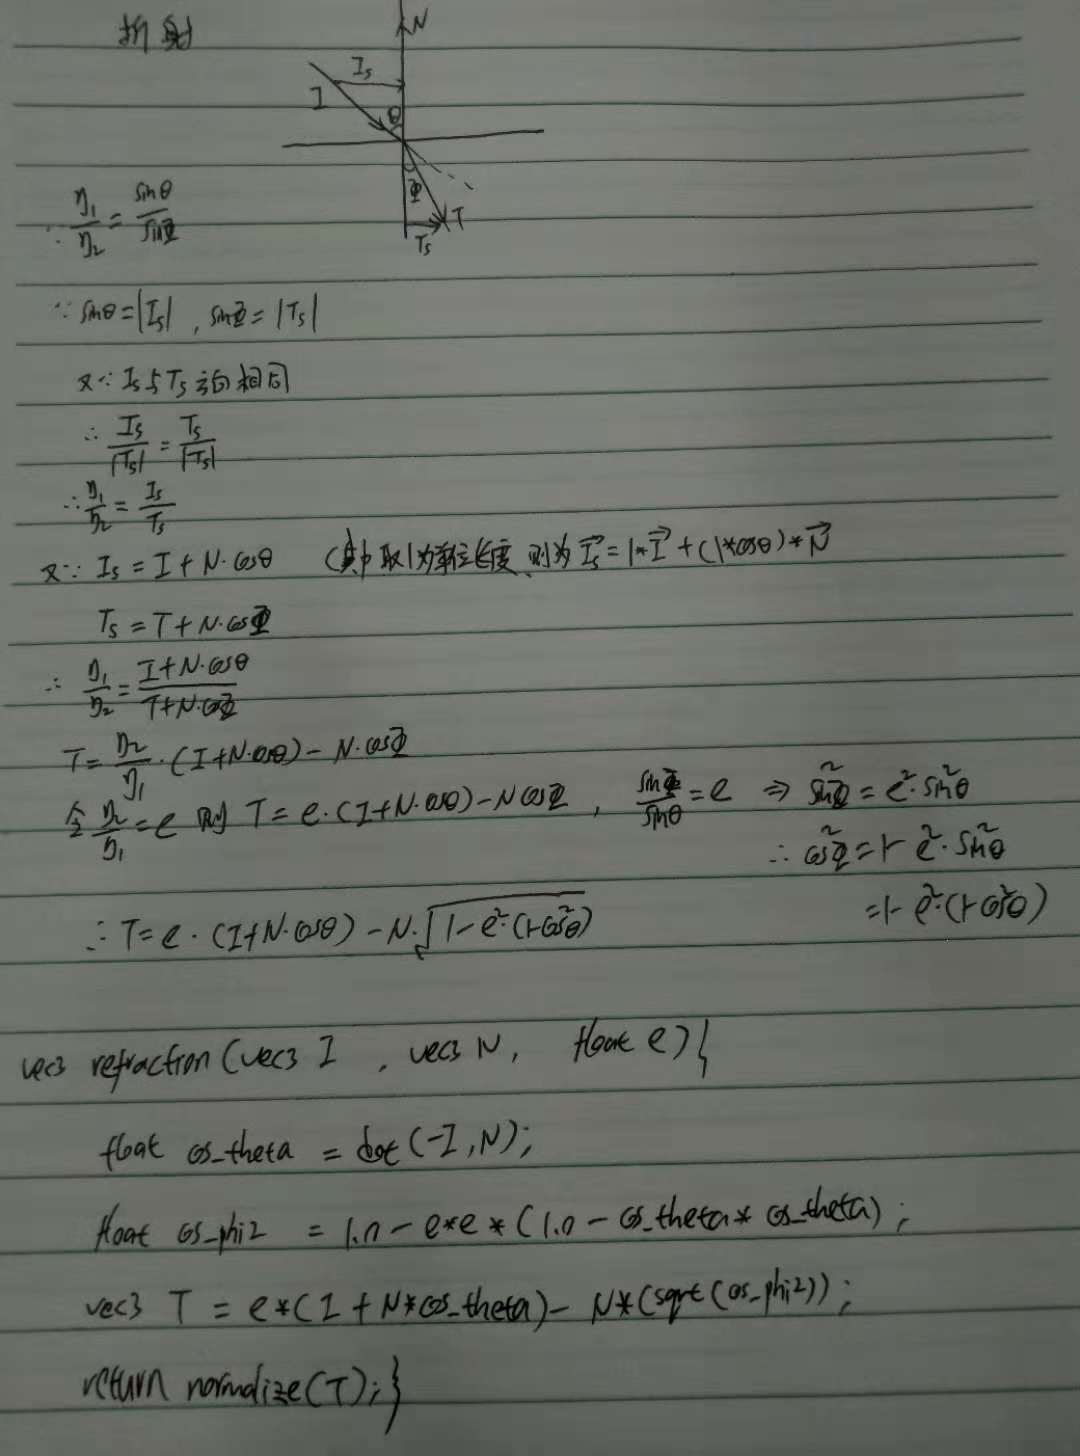 折射
N
I_s
I
θ
Φ
T
T_s
∵ η₁/η₂ = sinθ/sinΦ
∵ sinθ=|I_s| , sinΦ= |T_s|
又∵ I_s与T_s方向相同
∴ I_s/|I_s| = T_s/|T_s|
∴ η₁/η₂ = I_s/T_s
又∵ I_s = I + N·cosθ (其中取1为单位长度,则为 I_s→=1*I→+(1*cosθ)*N→
T_s = T + N·cosΦ
∴ η₁/η₂ = (I+N·cosθ)/(T+N·cosΦ)
T= η₂/η₁ ·(I+N·cosθ) - N·cosΦ
令 η₂/η₁ = e 则 T = e·(I+N·cosθ)-NcosΦ , sinΦ/sinθ = e ⇒ sin²Φ = e²·sin²θ
∴ cos²Φ=1- e²·sin²θ
=1- e²·(1-cos²θ)
∴ T= e·(I+N·cosθ) - N·√(1-e²·(1-cos²θ))
vec3 refraction(vec3 I , vec3 N, float e){
float cos_theta = dot(-I,N);
float cos_phi2 = 1.0 - e*e*(1.0 - cos_theta* cos_theta);
vec3 T = e*(I + N*cos_theta)- N*(sqrt(cos_phi2));
return normalize(T);}